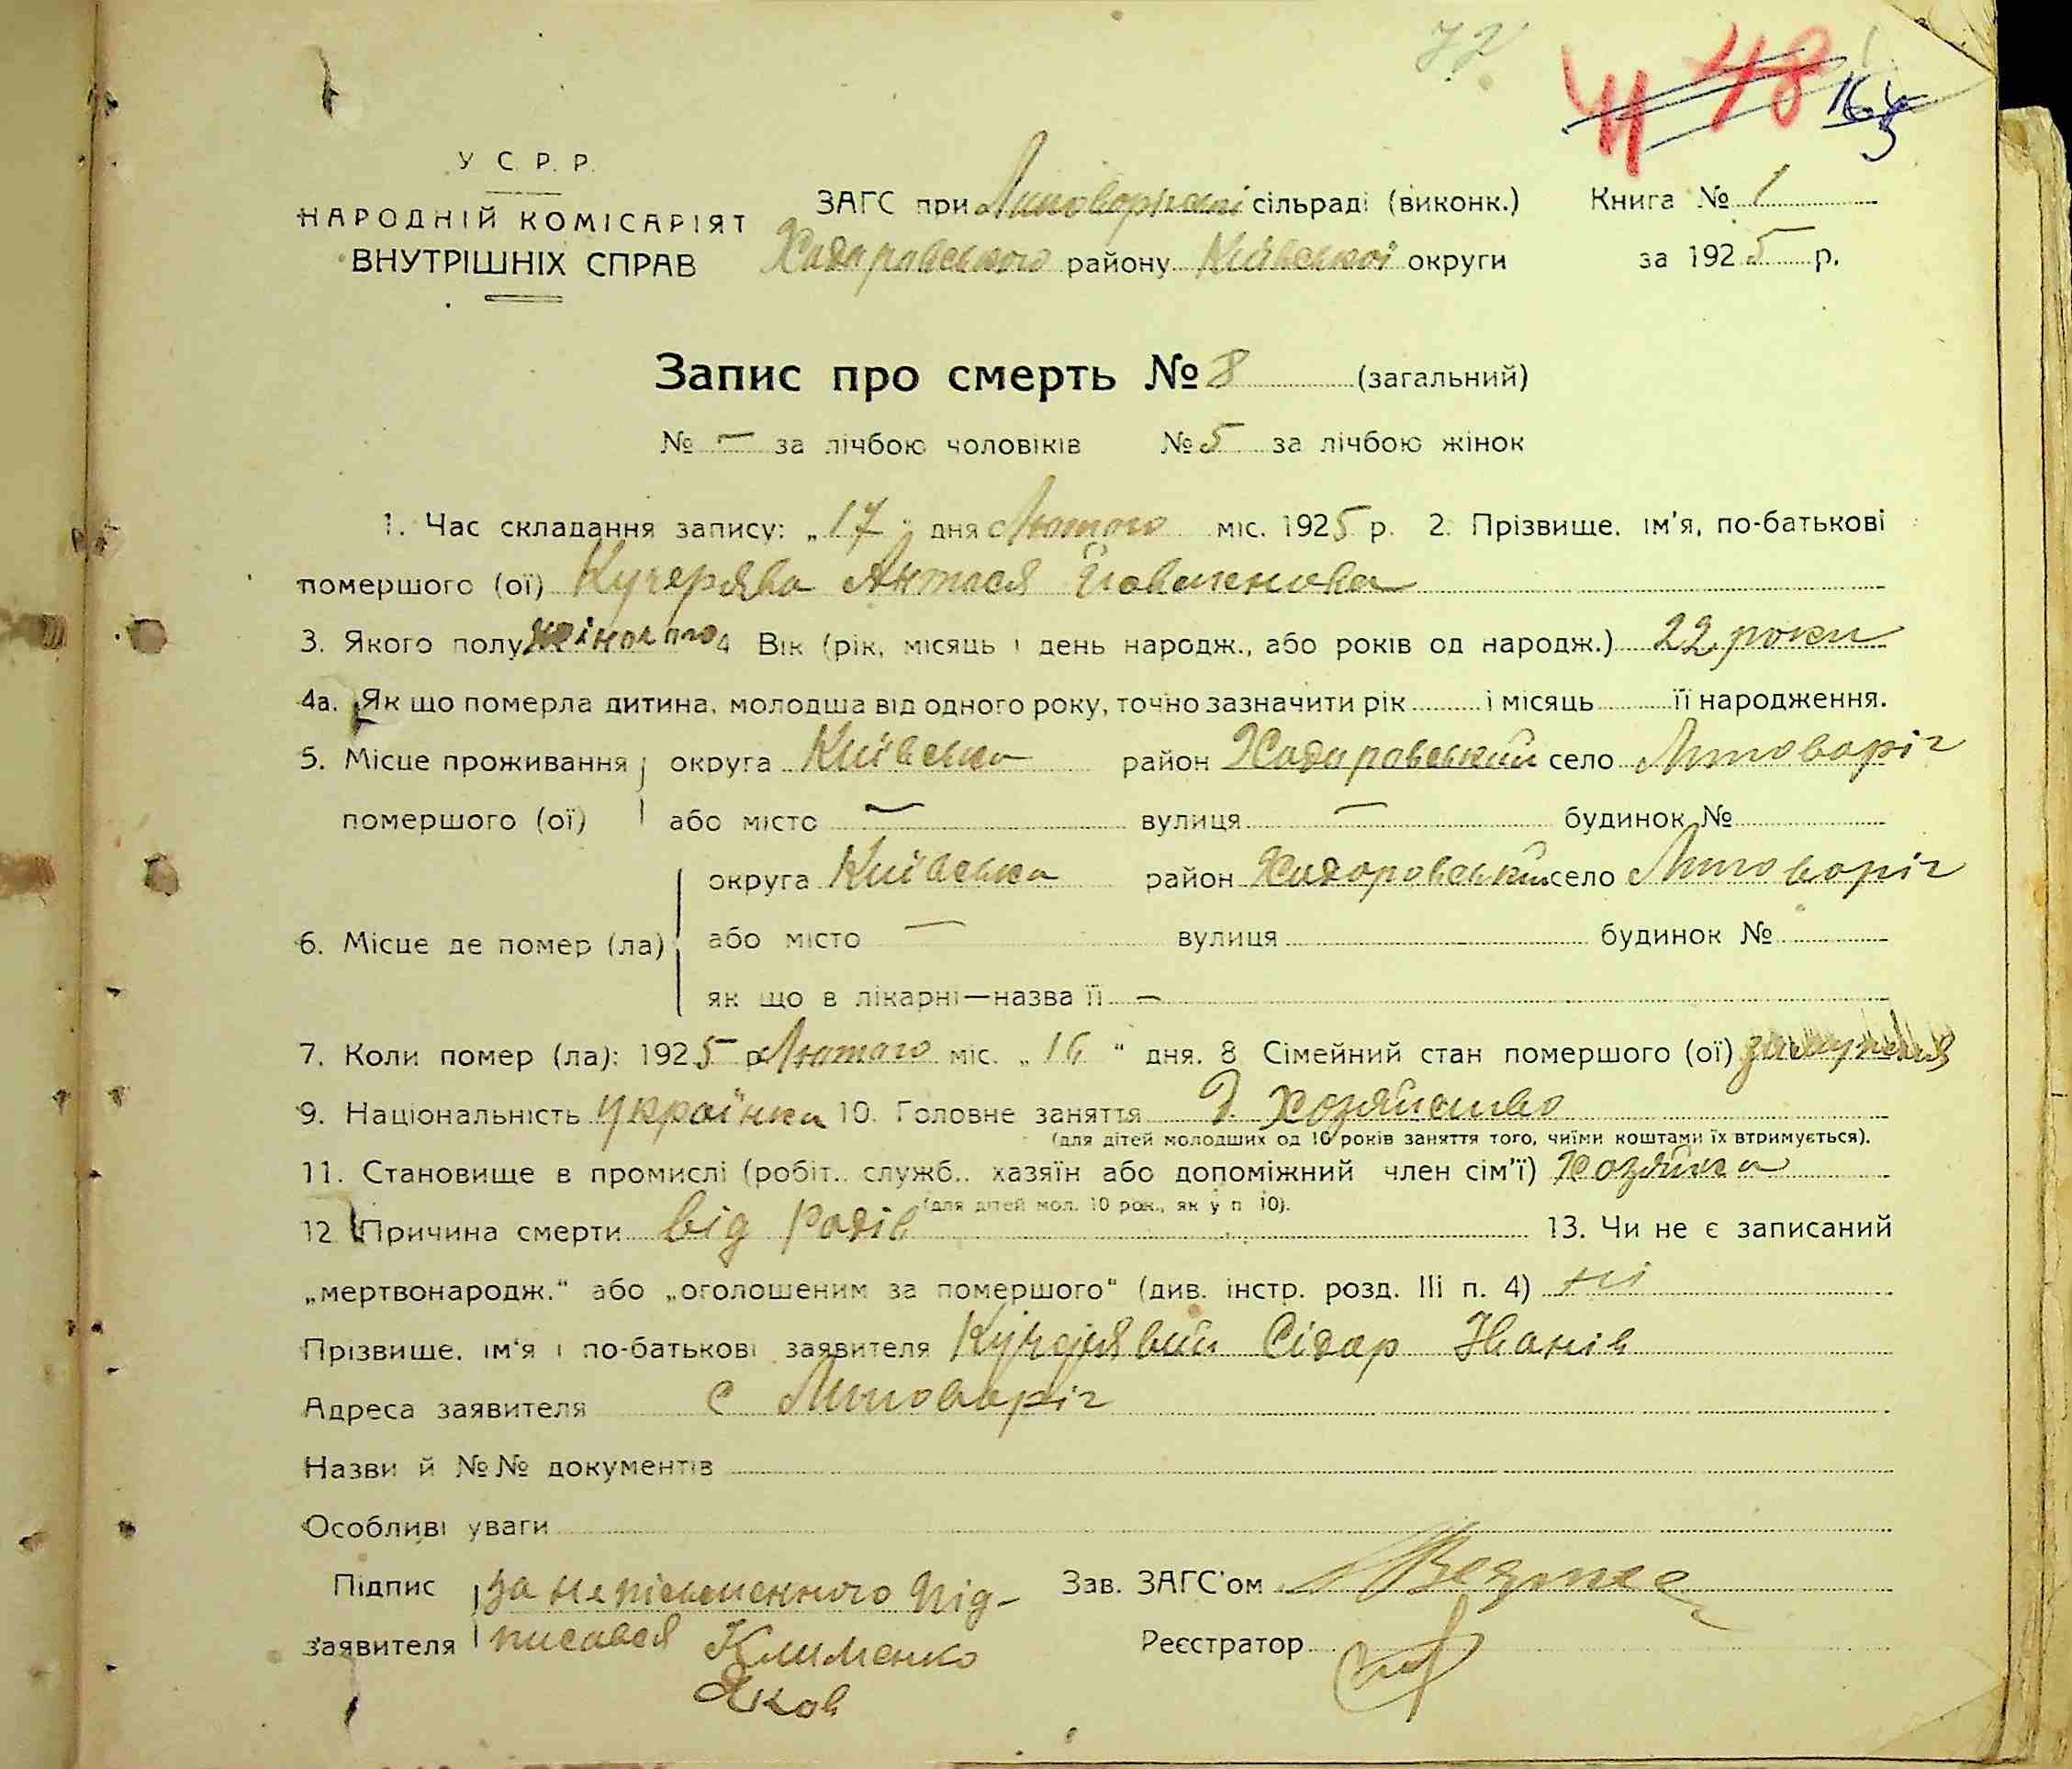 72
48
У С. Р. Р.
НАРОДНІЙ КОМІСАРІЯТ
ВНУТРІШНІХ СПРАВ
ЗАГС при сільраді (виконк.) Книга № 1
Ходоровського району Київської округи за 1925 р.
Запис про смерть № 8 (загальний)
№ — за лічбою чоловіків № 5 за лічбою жінок
1. Час складання запису: „17" дня Лютого міс. 1925 р. 2. Прізвище, ім'я, по-батькові
помершого (ої) Кучерява
3. Якого полу жіночого 4 Вік (рік, місяць і день народж., або років од народж.) 22 роки
4а. Як що померла дитина, молодша від одного року, точно зазначити рік і місяць її народження.
5. Місце проживання округа Київська район Ходоровський село Липоваріг
помершого (ої) або місто — вулиця — будинок №
округа Київська район Ходоровський село Липоваріг
6. Місце де помер (ла) або місто — вулиця будинок №
як що в лікарні—назва її —
7. Коли помер (ла): 1925 р Лютого міс. „16" дня. 8 Сімейний стан помершого (ої) замужня
9. Національність українка 10. Головне заняття хозяйство
(для дітей молодших од 10 років заняття того, чиїми коштами їх втримується).
11. Становище в промислі (робіт., служб., хазяїн або допоміжний член сім'ї) хозяйка
(для дітей мол. 10 рок., як у п 10).
12 Причина смерти від Родів 13. Чи не є записаний
„мертвонародж." або „оголошеним за помершого" (див. інстр. розд. III п. 4) ні
Прізвище, ім'я і по-батькові заявителя Кучерявий Сідор Іванів
Адреса заявителя с Липоваріг
Назви й №№ документів
Особливі уваги
Підпис за неписьменного під-
заявителя писався Клименко
Яков
Зав. ЗАГС'ом
Реєстратор